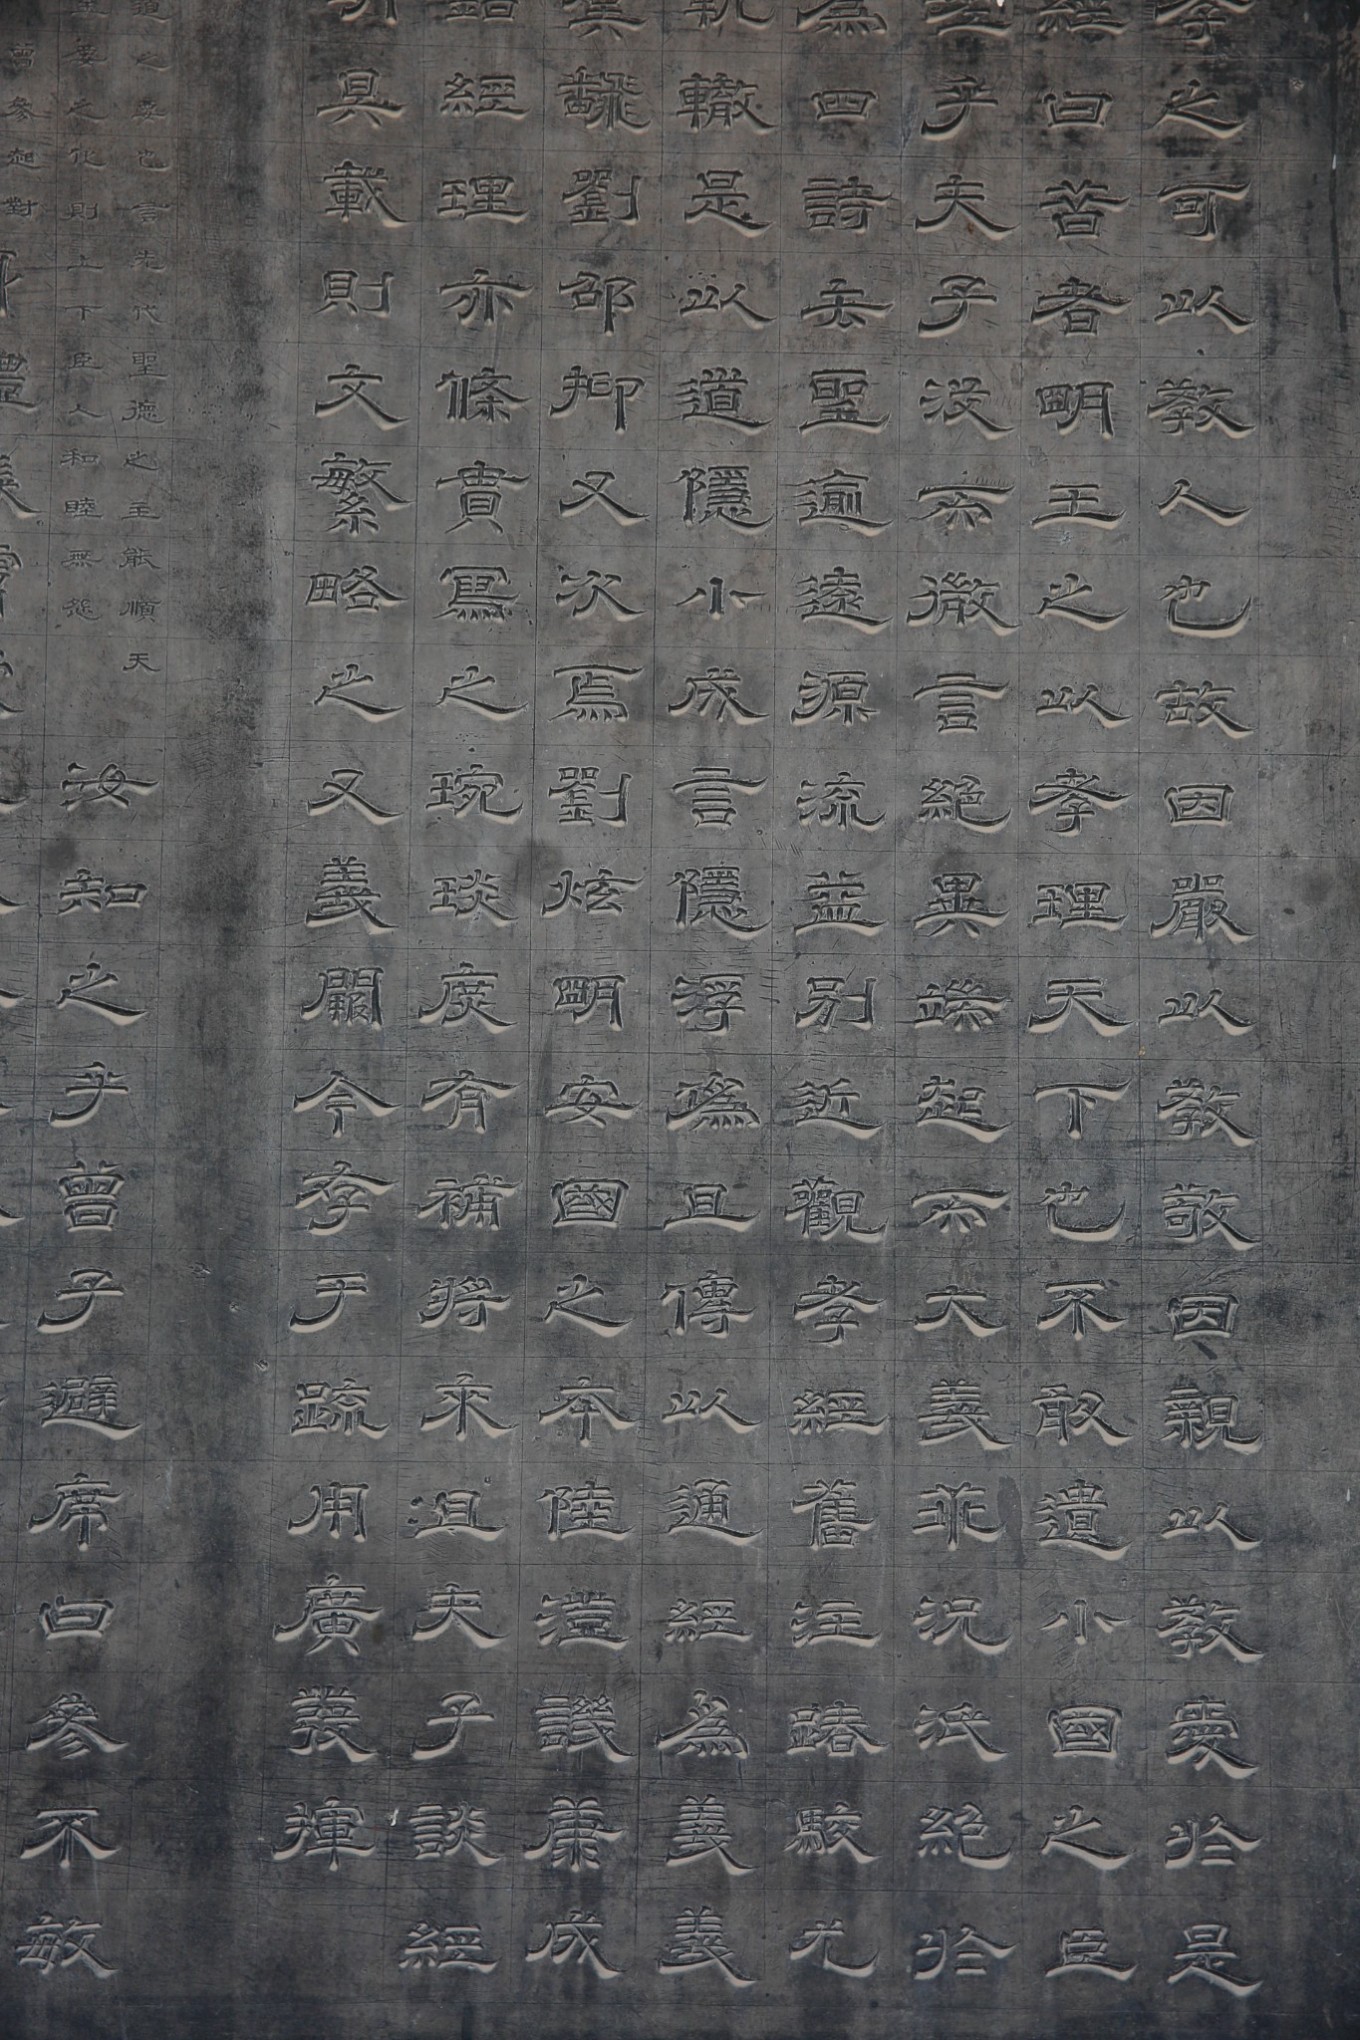 孝之可以教人也故因嚴以教敬因親以教愛於是
經曰昔者明王之以孝理天下也不敢遺小國之臣
乎夫子沒而微言絕異端起而大義乖況泯絕於
為四詩去聖逾遠源流益別近觀孝經舊注踳駮尤
軌轍是以道隱小成言隱浮偽且傳以通經為義義
虞翻劉邵抑又次焉劉炫明安國之本陸澄譏康成
錯經理亦條貫寫之琬琰庶有補將來且夫子談經
明具載則文繁略之又義闕今存于疏用廣發揮
道之要也言先代聖德之主能順天
至要之化則上下臣人和睦無怨
汝知之乎曾子避席曰參不敏
曾參起對